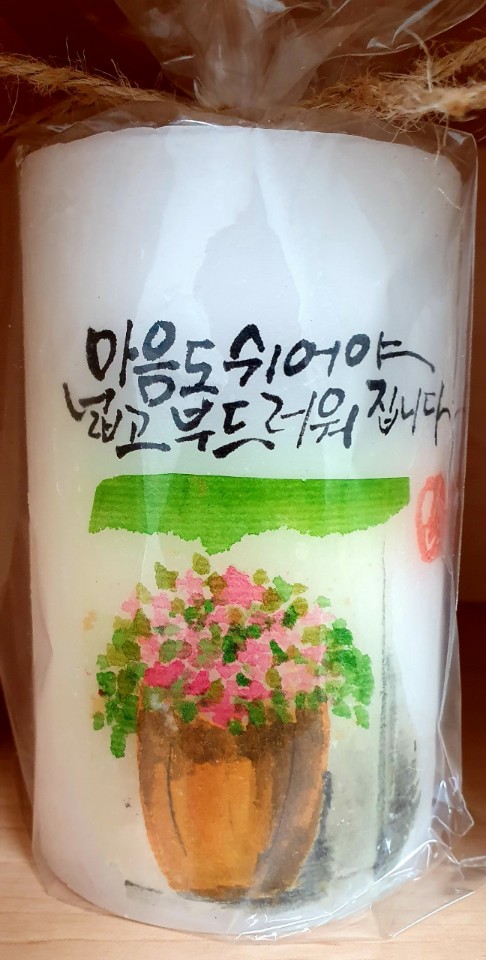 마음도 쉬어야
넓고 부드러워 집니다